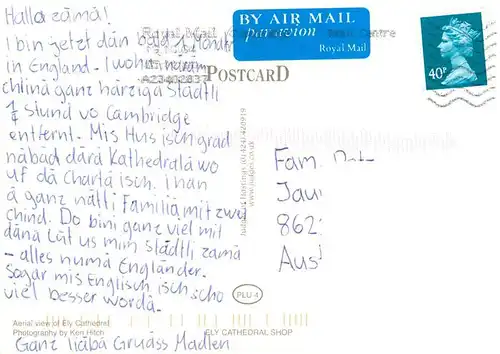 Halla zämä!
I bin jetzt dän bald 1 Monat
in England. I wohn imäm
chliinä ganz härzigä Städtli
1 Stund vo Cambridge
entfernt. Mis Hus isch grad
näbäd därä Kathedralä wo
uf dä Chartä isch. I han
ä ganz nätti Familiä mit zwei
chind. Do bini ganz viel mit
dänä Lüt us mim Städtli zämä
- alles numä Engländer.
Sogar mis Englisch isch scho
viel besser wordä.
Ganz liäbä Gruäss Madlen
Aerial view of Ely Cathedral
Photography by Ken Hitch
ELY CATHEDRAL SHOP
PLU 4
Royal Mail
A23402837
POSTCARD
BY AIR MAIL
par avion
Royal Mail
40P
www.judges.co.uk
Fam.
862